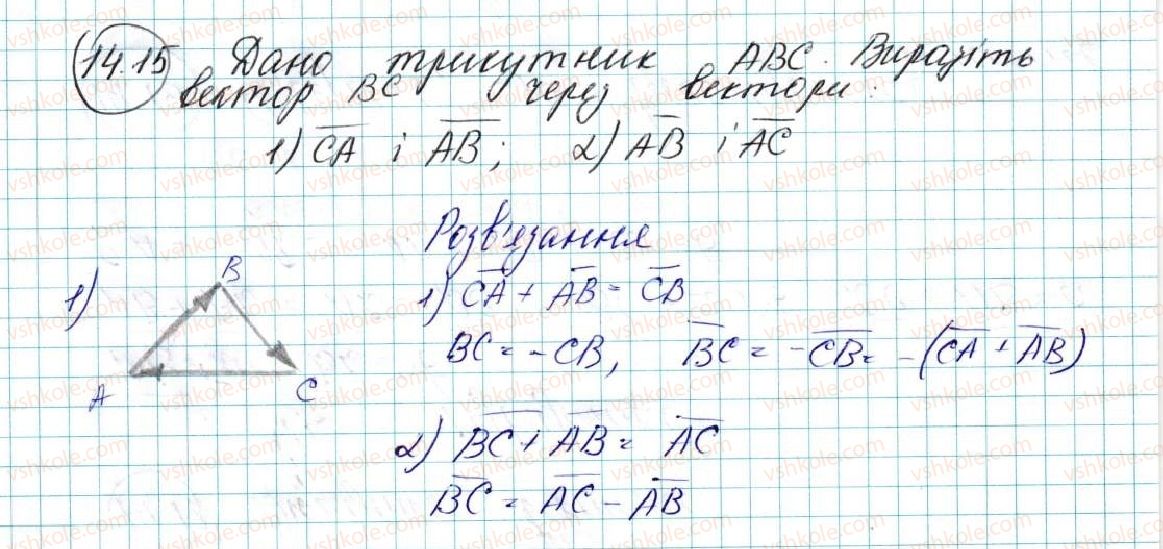 14.15 Дано трикутник ABC. Виразіть
вектор BC через вектори:
1) C̅A̅ і A̅B̅; 2) A̅B̅ і A̅C̅
Розв'язання
1)
B
A
C
1) C̅A̅ + A̅B̅ = C̅B̅
BC = -CB, B̅C̅ = -C̅B̅ = -(C̅A̅ + A̅B̅)
2) B̅C̅ + A̅B̅ = A̅C̅
B̅C̅ = A̅C̅ - A̅B̅
vshkole.com